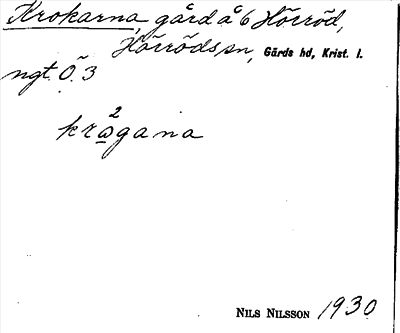 Krokarna, gård å 6 Hörröd,
Hörröds sn, Gärds hd, Krist. l.
ngt. Ö. 3
2
kragana
NILS NILSSON 1930